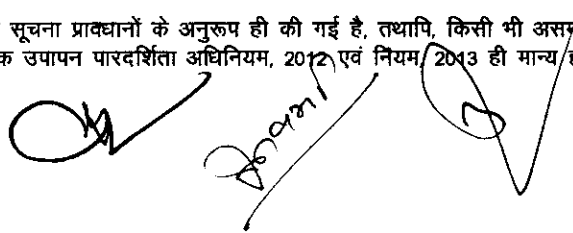 सूचना प्रावधानों के अनुरूप ही की गई है, तथापि, किसी भी
उपापन पारदर्शिता अधिनियम, 2012 एवं नियम, 2013 ही मान्य